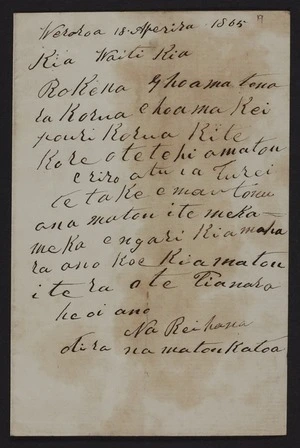 Weroroa 18 Aperira 1865
Kia Waiti Kia
Rokena E hoama tena
ra Korua e hoama Kei
pouri Korua Ki te
Kore o tetehi o matou
e riro atu i a Turei
te take e mau tonu
ana matou i te meka
meka engari Kia maha
ra ano koe Kia matou
i te ra o te Tianara
heoi ano
Na Reihana
otira na matou Katoa